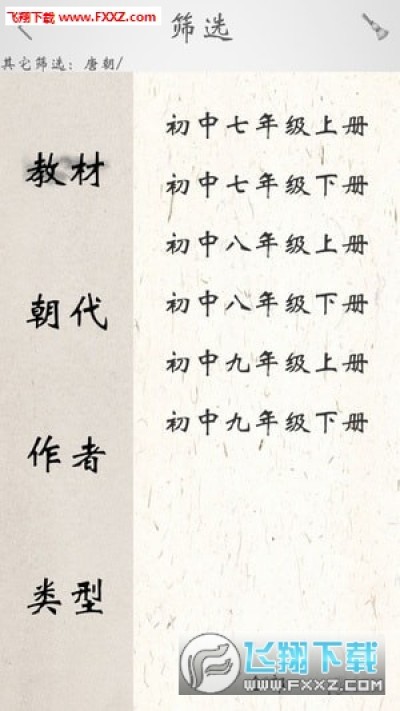 飞翔下载 www.FXXZ.com
筛选
其它筛选：唐朝/
教材
朝代
作者
类型
初中七年级上册
初中七年级下册
初中八年级上册
初中八年级下册
初中九年级上册
初中九年级下册
飞翔下载
WWW.FXXZ.COM